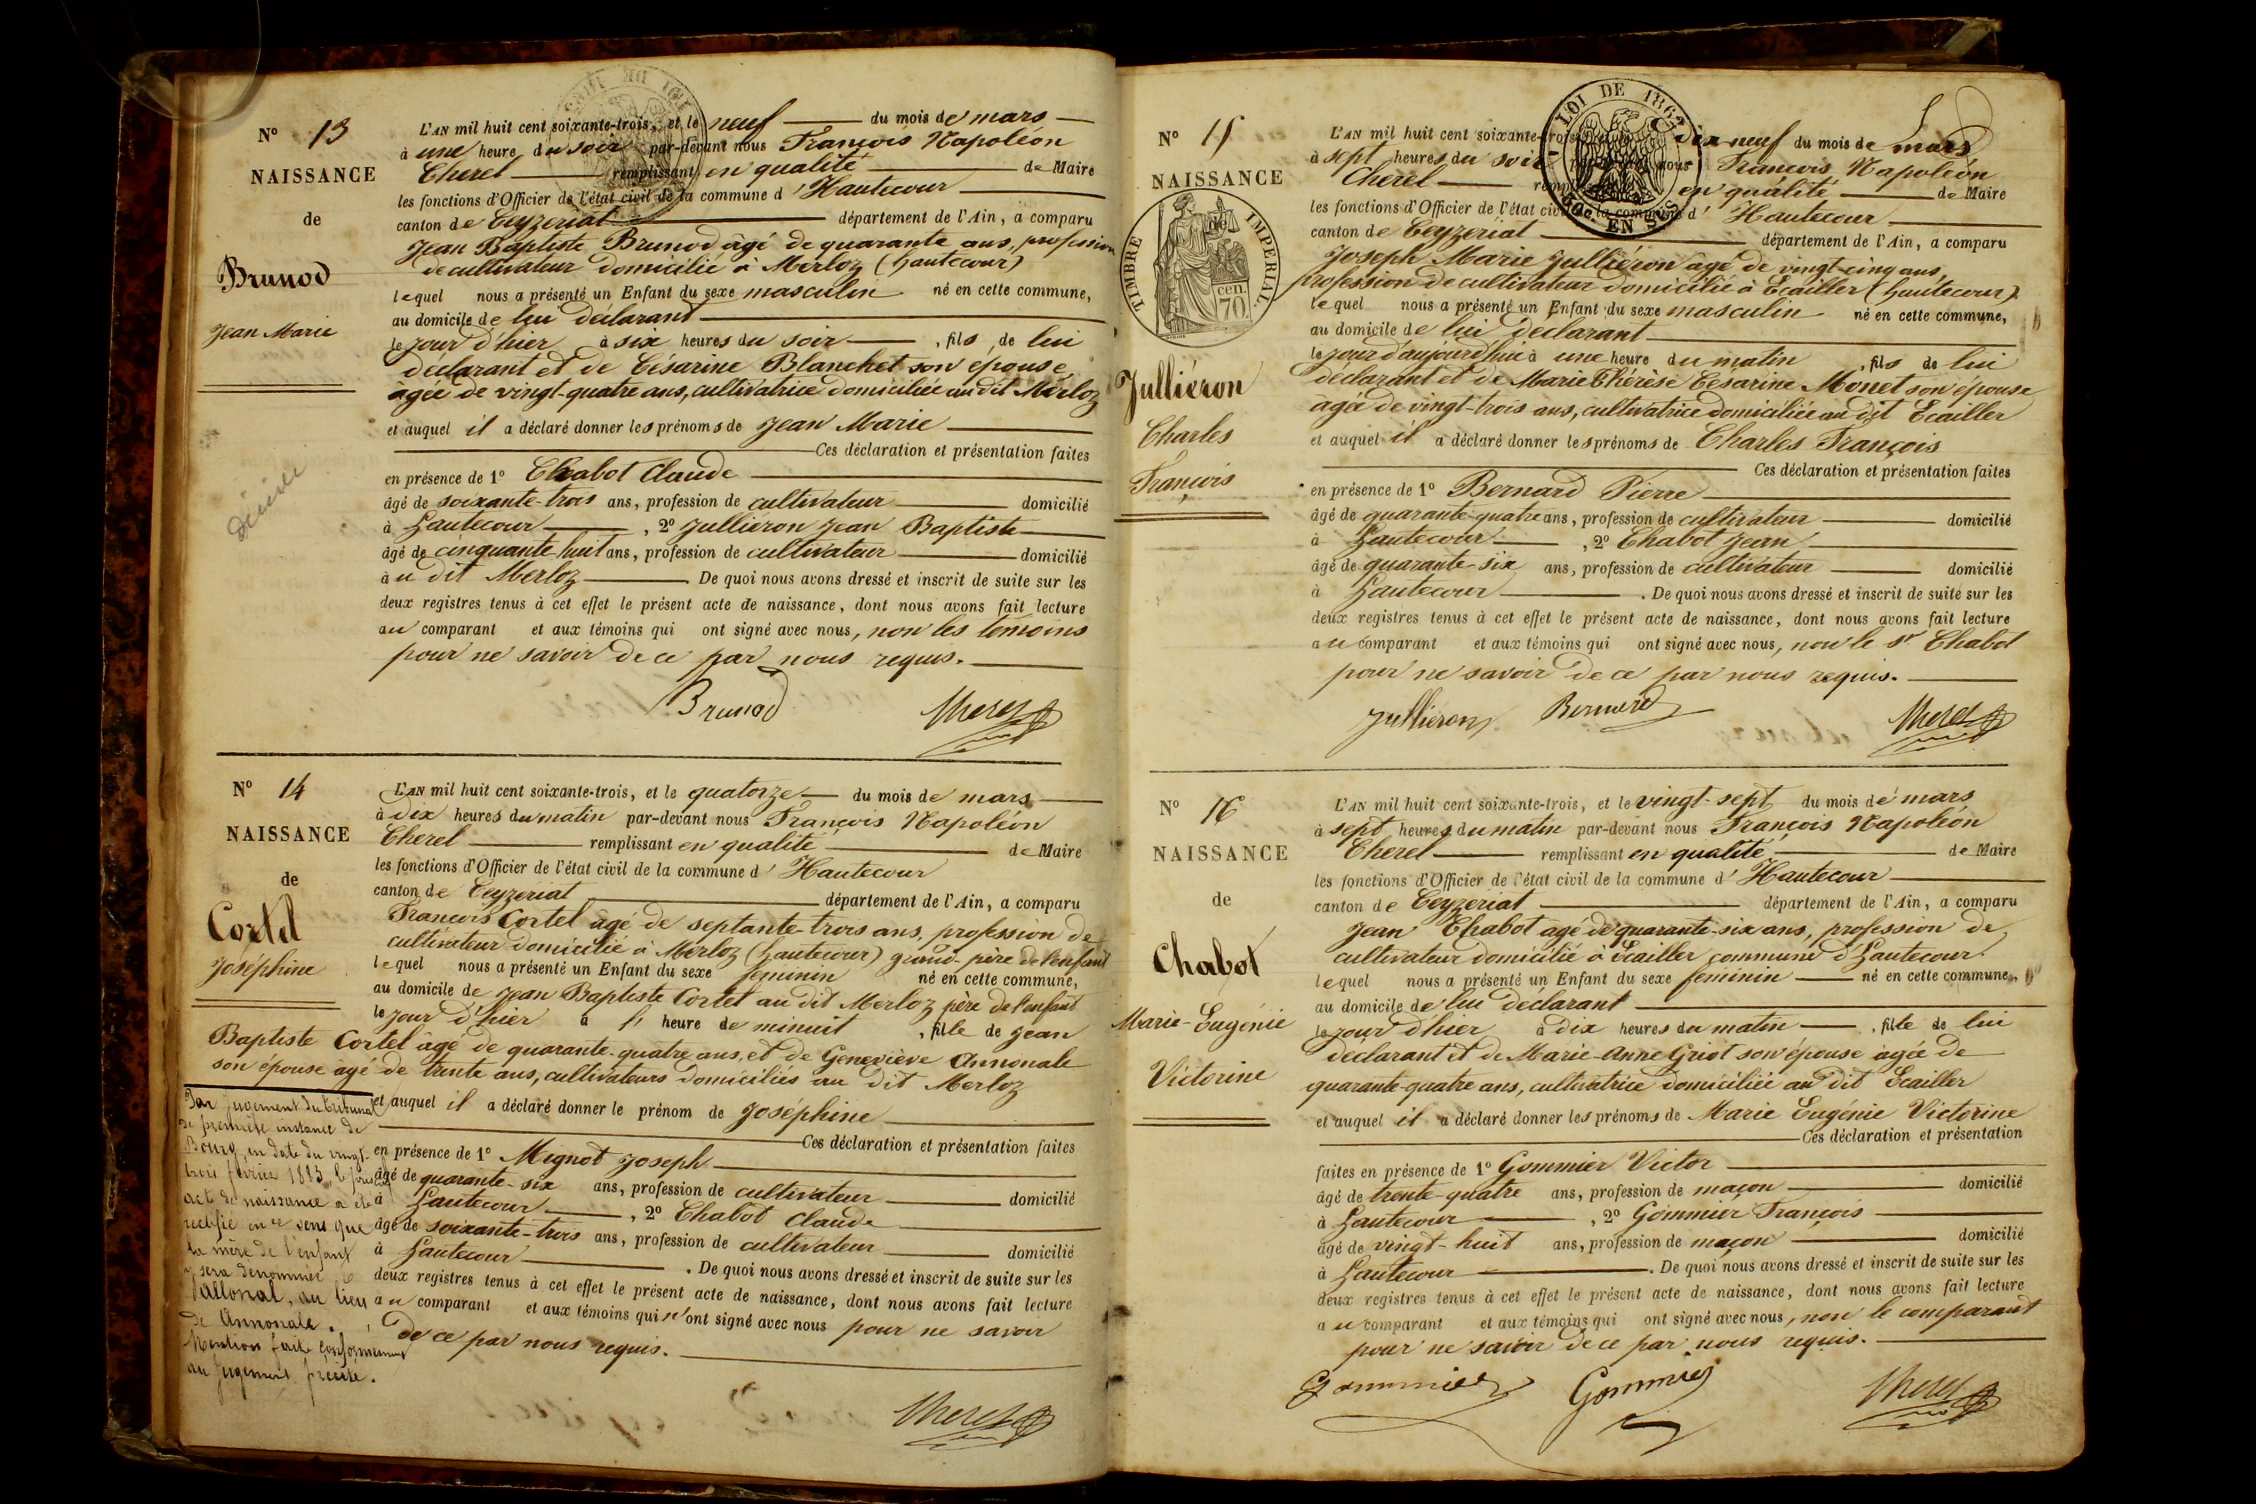 N° 13
NAISSANCE
de
Brunod
Jean Marie
L'AN mil huit cent soixante-trois, et le neuf du mois de mars
à une heure du soir par-devant nous François Napoléon
Cherel remplissant en qualité de Maire
les fonctions d'Officier de l'état civil de la commune d'Hautecour
canton de Ceyzeriat département de l'Ain, a comparu
Jean Baptiste Brunod âgé de quarante ans, profession
de cultivateur domicilié à Merloz (hautecour)
lequel nous a présenté un Enfant du sexe masculin né en cette commune,
au domicile de lui déclarant
le jour d'hier à six heures du soir, fils de lui
déclarant et de Césarine Blanchet son épouse
âgée de vingt-quatre ans, cultivatrice domiciliée au dit Merloz
et auquel il a déclaré donner les prénoms de Jean Marie
Ces déclaration et présentation faites
en présence de 1° Chabot Claude
âgé de soixante-trois ans, profession de cultivateur domicilié
à Hautecour, 2° Julliéron Jean Baptiste
âgé de cinquante huit ans, profession de cultivateur domicilié
au dit Merloz De quoi nous avons dressé et inscrit de suite sur les
deux registres tenus à cet effet le présent acte de naissance, dont nous avons fait lecture
au comparant et aux témoins qui ont signé avec nous, non les témoins
pour ne savoir de ce par nous requis.
Brunod Cherel
N° 14
NAISSANCE
de
Cortel
Joséphine
L'AN mil huit cent soixante-trois, et le quatorze du mois de mars
à dix heures du matin par-devant nous François Napoléon
Cherel remplissant en qualité de Maire
les fonctions d'Officier de l'état civil de la commune d'Hautecour
canton de Ceyzeriat département de l'Ain, a comparu
François Cortel âgé de septante-trois ans, profession de
cultivateur domicilié à Merloz (hautecour) grand-père de l'enfant
lequel nous a présenté un Enfant du sexe féminin né en cette commune,
au domicile de Jean Baptiste Cortel au dit Merloz père de l'enfant
le jour d'hier à l' heure de minuit, fille de Jean
Baptiste Cortel âgé de quarante-quatre ans, et de Geneviève Annonale
son épouse âgé de trente ans, cultivateurs domiciliés au dit Merloz
et auquel il a déclaré donner le prénom de Joséphine
Ces déclaration et présentation faites
en présence de 1° Mignot Joseph
âgé de quarante-six ans, profession de cultivateur domicilié
à Hautecour, 2° Chabot Claude
âgé de soixante-trois ans, profession de cultivateur domicilié
à Hautecour. De quoi nous avons dressé et inscrit de suite sur les
deux registres tenus à cet effet le présent acte de naissance, dont nous avons fait lecture
au comparant et aux témoins qui n'ont signé avec nous pour ne savoir
de ce par nous requis.
Cherel
Par jugement du tribunal
de première instance de
Bourg, en date du vingt-
trois février 1883, le présent
acte de naissance a été
rectifié en ce sens que
la mère de l'enfant
y sera dénommée
Vallonal, au lieu
de Annonale.
Mention faite conformément
au jugement précité.
N° 15
NAISSANCE
de
TIMBRE IMPERIAL
70 cen.
Julliéron
Charles
François
LOI DE 1862
EN SUS
L'AN mil huit cent soixante-trois dix-neuf du mois de mars
à sept heures du soir nous François Napoléon
Cherel en qualité de Maire
les fonctions d'Officier de l'état civil de la commune d'Hautecour
canton de Ceyzériat département de l'Ain, a comparu
Joseph Marie Julliéron âgé de vingt-cinq ans,
profession de cultivateur domicilié à Écailler (hautecour)
lequel nous a présenté un Enfant du sexe masculin né en cette commune,
au domicile de lui déclarant
le jour d'aujourd'hui à une heure du matin, fils de lui
déclarant et de Marie Thérèse Césarine Monet son épouse
âgée de vingt-trois ans, cultivatrice domiciliée au dit Écailler
et auquel il a déclaré donner les prénoms de Charles François
Ces déclaration et présentation faites
en présence de 1° Bernard Pierre
âgé de quarante-quatre ans, profession de cultivateur domicilié
à Hautecour, 2° Chabot Jean
âgé de quarante-six ans, profession de cultivateur domicilié
à Hautecour. De quoi nous avons dressé et inscrit de suite sur les
deux registres tenus à cet effet le présent acte de naissance, dont nous avons fait lecture
au comparant et aux témoins qui ont signé avec nous, non le Sr Chabot
pour ne savoir de ce par nous requis.
Jullieron Bernard Cherel
N° 16
NAISSANCE
de
Chabot
Marie-Eugénie
Victorine
L'AN mil huit cent soixante-trois, et le vingt-sept du mois de mars
à sept heures du matin par-devant nous François Napoléon
Cherel remplissant en qualité de Maire
les fonctions d'Officier de l'état civil de la commune d'Hautecour
canton de Ceyzériat département de l'Ain, a comparu
Jean Chabot agé de quarante-six ans, profession de
cultivateur domicilié à Écailler commune d'Hautecour
lequel nous a présenté un Enfant du sexe féminin né en cette commune,
au domicile de lui déclarant
le jour d'hier à dix heures du matin, fille de lui
déclarant et de Marie-Anne Griot son épouse agée de
quarante-quatre ans, cultivatrice domiciliée au dit Écailler
et auquel il a déclaré donner les prénoms de Marie Eugénie Victorine
Ces déclaration et présentation
faites en présence de 1° Gommier Victor
âgé de trente-quatre ans, profession de maçon domicilié
à Hautecour, 2° Gommier François
âgé de vingt-huit ans, profession de maçon domicilié
à Hautecour. De quoi nous avons dressé et inscrit de suite sur les
deux registres tenus à cet effet le présent acte de naissance, dont nous avons fait lecture
au comparant et aux témoins qui ont signé avec nous, non le comparant
pour ne savoir de ce par nous requis.
Gommier Gommier Cherel